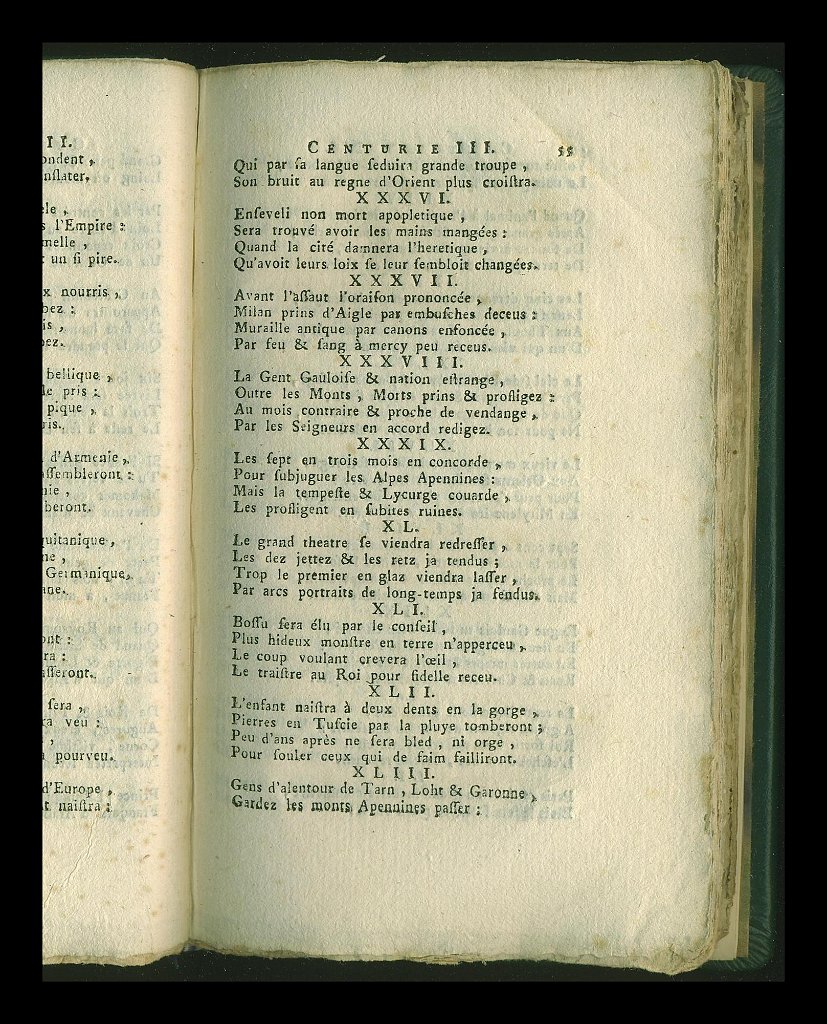 II.
ondent,
nſlater,
le,
s l'Empire :
melle,
un ſi pire.
x nourris,
bez :
is,
bez.
bellique,
le pris :
pique,
ris.
d'Armenie,
ſſembleront :
nie,
beront.
quitanique,
ne,
Germanique,
ane.
ont :
ra :
iſſeront.
ſera,
ra veu :
,
pourveu.
d'Europe,
t naiſtra :
CENTURIE III. 55
Qui par ſa langue ſeduira grande troupe,
Son bruit au regne d'Orient plus croiſtra.
XXXVI.
Enſeveli non mort apopletique,
Sera trouvé avoir les mains mangées :
Quand la cité damnera l'heretique,
Qu'avoit leurs loix ſe leur ſembloit changées.
XXXVII.
Avant l'aſſaut l'oraiſon prononcée,
Milan prins d'Aigle par embuſches deceus :
Muraille antique par canons enfoncée,
Par feu & ſang à mercy peu receus.
XXXVIII.
La Gent Gauloiſe & nation eſtrange,
Outre les Monts, Morts prins & profligez :
Au mois contraire & proche de vendange,
Par les Seigneurs en accord redigez.
XXXIX.
Les ſept en trois mois en concorde,
Pour ſubjuguer les Alpes Apennines :
Mais la tempeſte & Lycurge couarde,
Les profligent en ſubites ruines.
XL.
Le grand theatre ſe viendra redreſſer,
Les dez jettez & les retz ja tendus ;
Trop le premier en glaz viendra laſſer,
Par arcs portraits de long-temps ja fendus.
XLI.
Boſſu ſera élu par le conſeil,
Plus hideux monſtre en terre n'apperceu,
Le coup voulant crevera l'œil,
Le traiſtre au Roi pour fidelle receu.
XLII.
L'enfant naiſtra à deux dents en la gorge,
Pierres en Tuſcie par la pluye tomberont ;
Peu d'ans après ne ſera bled, ni orge,
Pour ſouler ceux qui de faim failliront.
XLIII.
Gens d'alentour de Tarn, Loht & Garonne,
Gardez les monts Apennines paſſer :